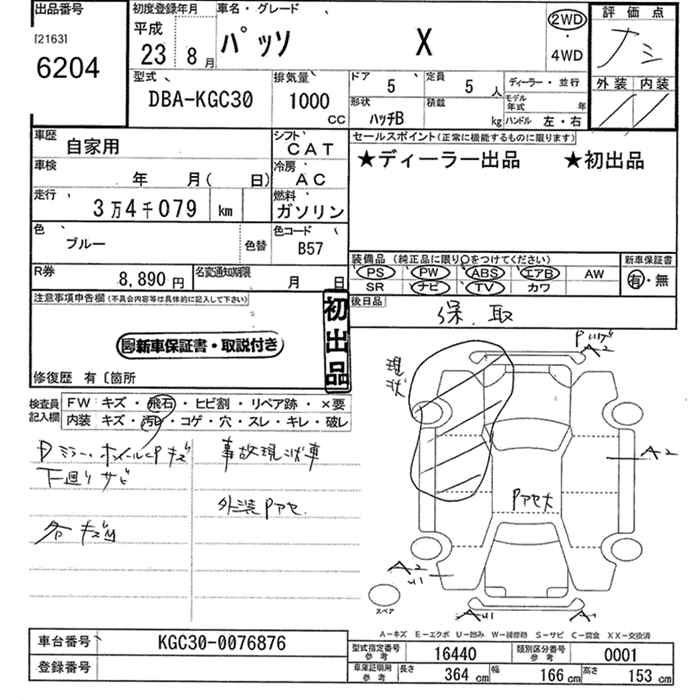 出品番号 初度登録年月 車名・グレード 評価点
[2163] 平成 2WD
6204 23年 8月 パッソ X ナシ
4WD
型式 排気量 ドア 定員 ディーラー・並行 外装 内装
DBA-KGC30 1000 cc 5 5人 モデル年式 年
形状 積載 ハンドル 左・右
ハッチB kg
車歴 自家用 シフト CAT セールスポイント(正常に機能するものに限ります)
車検 年 月( 日) 冷房 AC ★ディーラー出品 ★初出品
走行 3万4千079 km 燃料 ガソリン
色 ブルー 色替 色コード B57
装備品 (純正品に限り○をつけてください) 新車保証書
R券 8,890円 名変通知期限 月 日 PS PW ABS エアB AW 有・無
SR ナビ TV カワ
注意事項申告欄(不具合内容等は具体的に記入して下さい) 初出品 後日品
保、取
新車保証書・取説付き
修復歴 有 〔箇所
検査員記入欄 FW キズ・飛石・ヒビ割・リペア跡・×要
内装 キズ・汚れ・コゲ・穴・スレ・キレ・破レ
ミラー・ホイールCPキズ 事故現状車
下廻りサビ
外装Pアセ
各キズU
現状
A2
A2
Pアセ大
A2
U1
スペア
AU1
A1
A-キズ E-エクボ U-凹み W-補修跡 S-サビ C-腐食 XX-交換済
車台番号 KGC30-0076876
型式指定番号 参考 16440 類別区分番号 参考 0001
登録番号
車庫証明用 参考 長さ 364 cm 幅 166 cm 高さ 153 cm